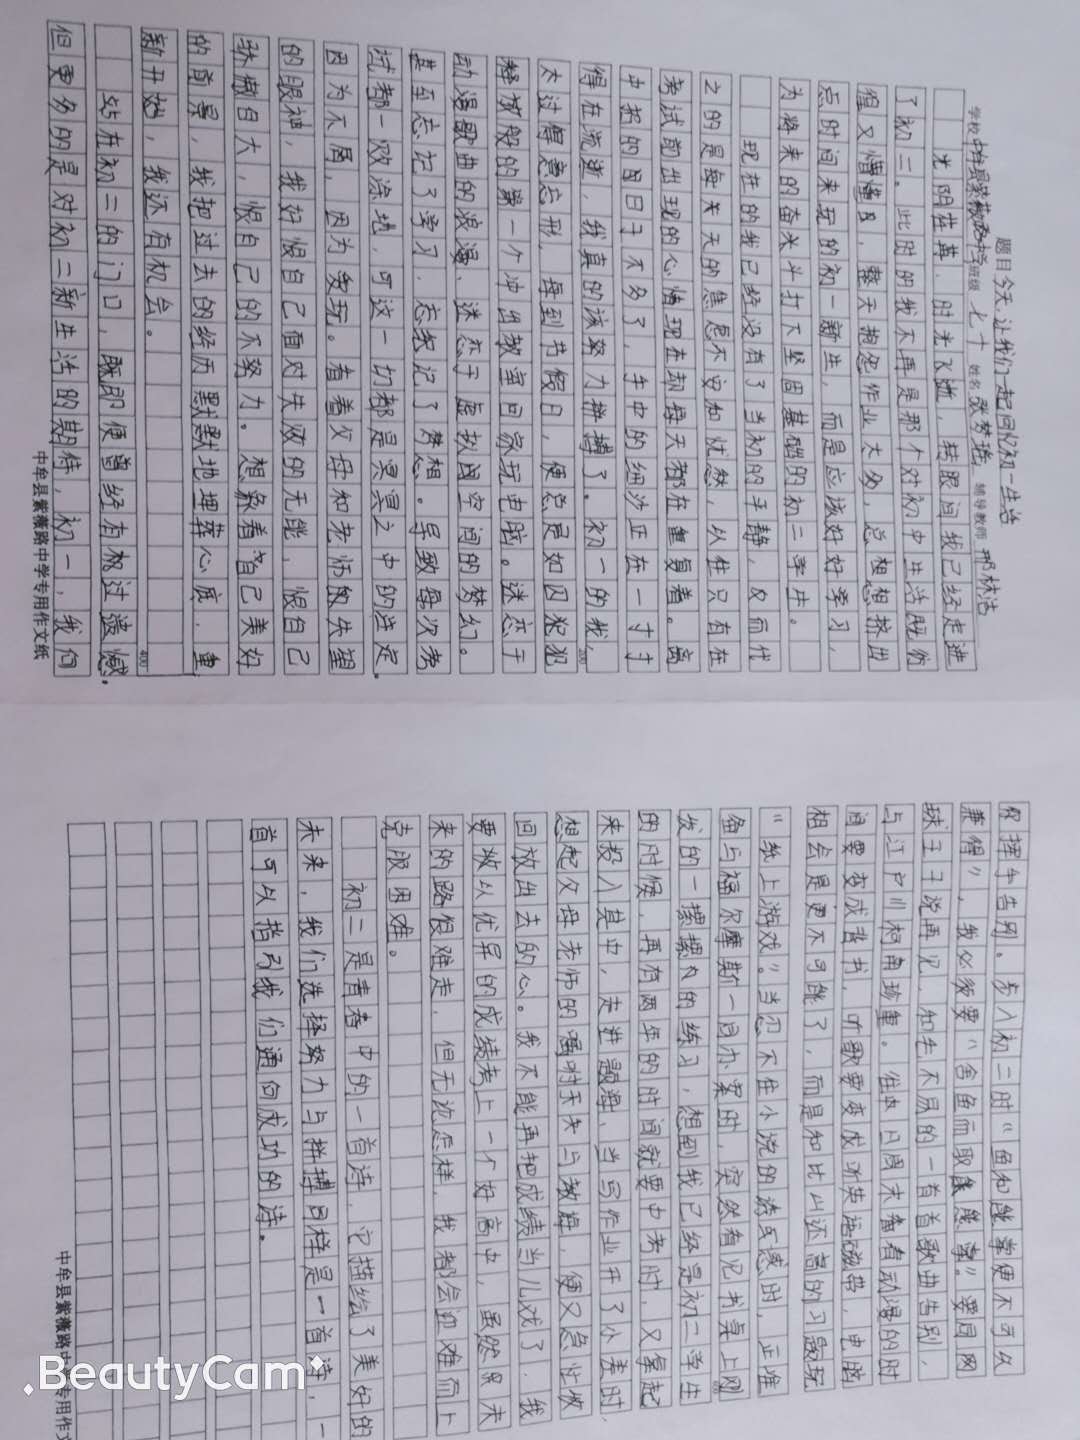 题目今天,让我们一起回忆初一生活
学校 中牟县紫薇路中学 班级 七十 姓名 张梦瑶 辅导教师 邢林洁
光阴荏苒,时光飞逝,转眼间我已经走进
了初二。此时的我不再是那个对初中生活既彷
徨又懵懂,整天抱怨作业太多,总想想挤出
点时间来玩的初一新生,而是应该好好学习,
为将来的奋斗打下坚固基础的初二学生。
现在的我已经没有了当初的平静,反而代
之的是每天的焦虑不安和忧愁,从往只有在
考试前出现的心情现在却每天都在重复着。离
中招的日子不多了,手中的细沙正在一寸寸
得在流逝,我真的该努力拼搏了。初一的我,
太过得意忘形,每到节假日,便总是如囚犯犯
释放般的第一个冲出教室回家玩电脑。迷恋于
动漫歌曲的浪漫、迷恋于虚拟网空间的梦幻。
甚至忘记了学习,忘记了梦想。导致每次考
试都一败涂地,可这一切都是冥冥之中的注定。
因为不屑,因为贪玩。看着父母和老师的失望
的眼神,我好恨自己面对失败的无能,恨自己
骄傲自大,恨自己的不努力。想象着自己美好
的前景,我把过去的经历默默地埋葬心底,重
新开始,我还有机会。
站在初二的门口,既即便曾经有机过遗憾。
但更多的是对初二新生活的期待,初一,我们
中牟县紫薇路中学专用作文纸
挥手告别。步入初二时“鱼和熊掌便不可久
兼得”,我必须要“舍鱼而取熊掌”要同网
球王子说再见,和牛不易的一首首歌曲告别,
与江户川柯南珍重。往日周末看着动漫的时
间要变成背书,听歌要变成听英语磁带,电脑
相会是更不可能了,而是和比山还高的习题玩
“纸上游戏”。当忍不住小说的诱惑感时,正准
备与福尔摩斯一同办案时,突然看见书桌上网
发的一摞摞的练习,想到我已经是初二学生
的时候,再有两年的时间就要中考时,又拿起
来投入其中,走进题海,当写作业开了小差时,
想起父母老师的嘱咐天天与教诲,便又急忙收
回放出去的心。我不能再把成绩当儿戏了,我
要坡以优异的成绩考上一个好高中,虽然未
来的路很难走,但无论怎样,我都会迎难而上
克服困难。
初二是青春中的一首诗,它描绘了美好的
未来,我们选择努力与拼搏同样是一首诗,一
首可以指引我们通向成功的诗。
中牟县紫薇路中学专用作文
BeautyCam